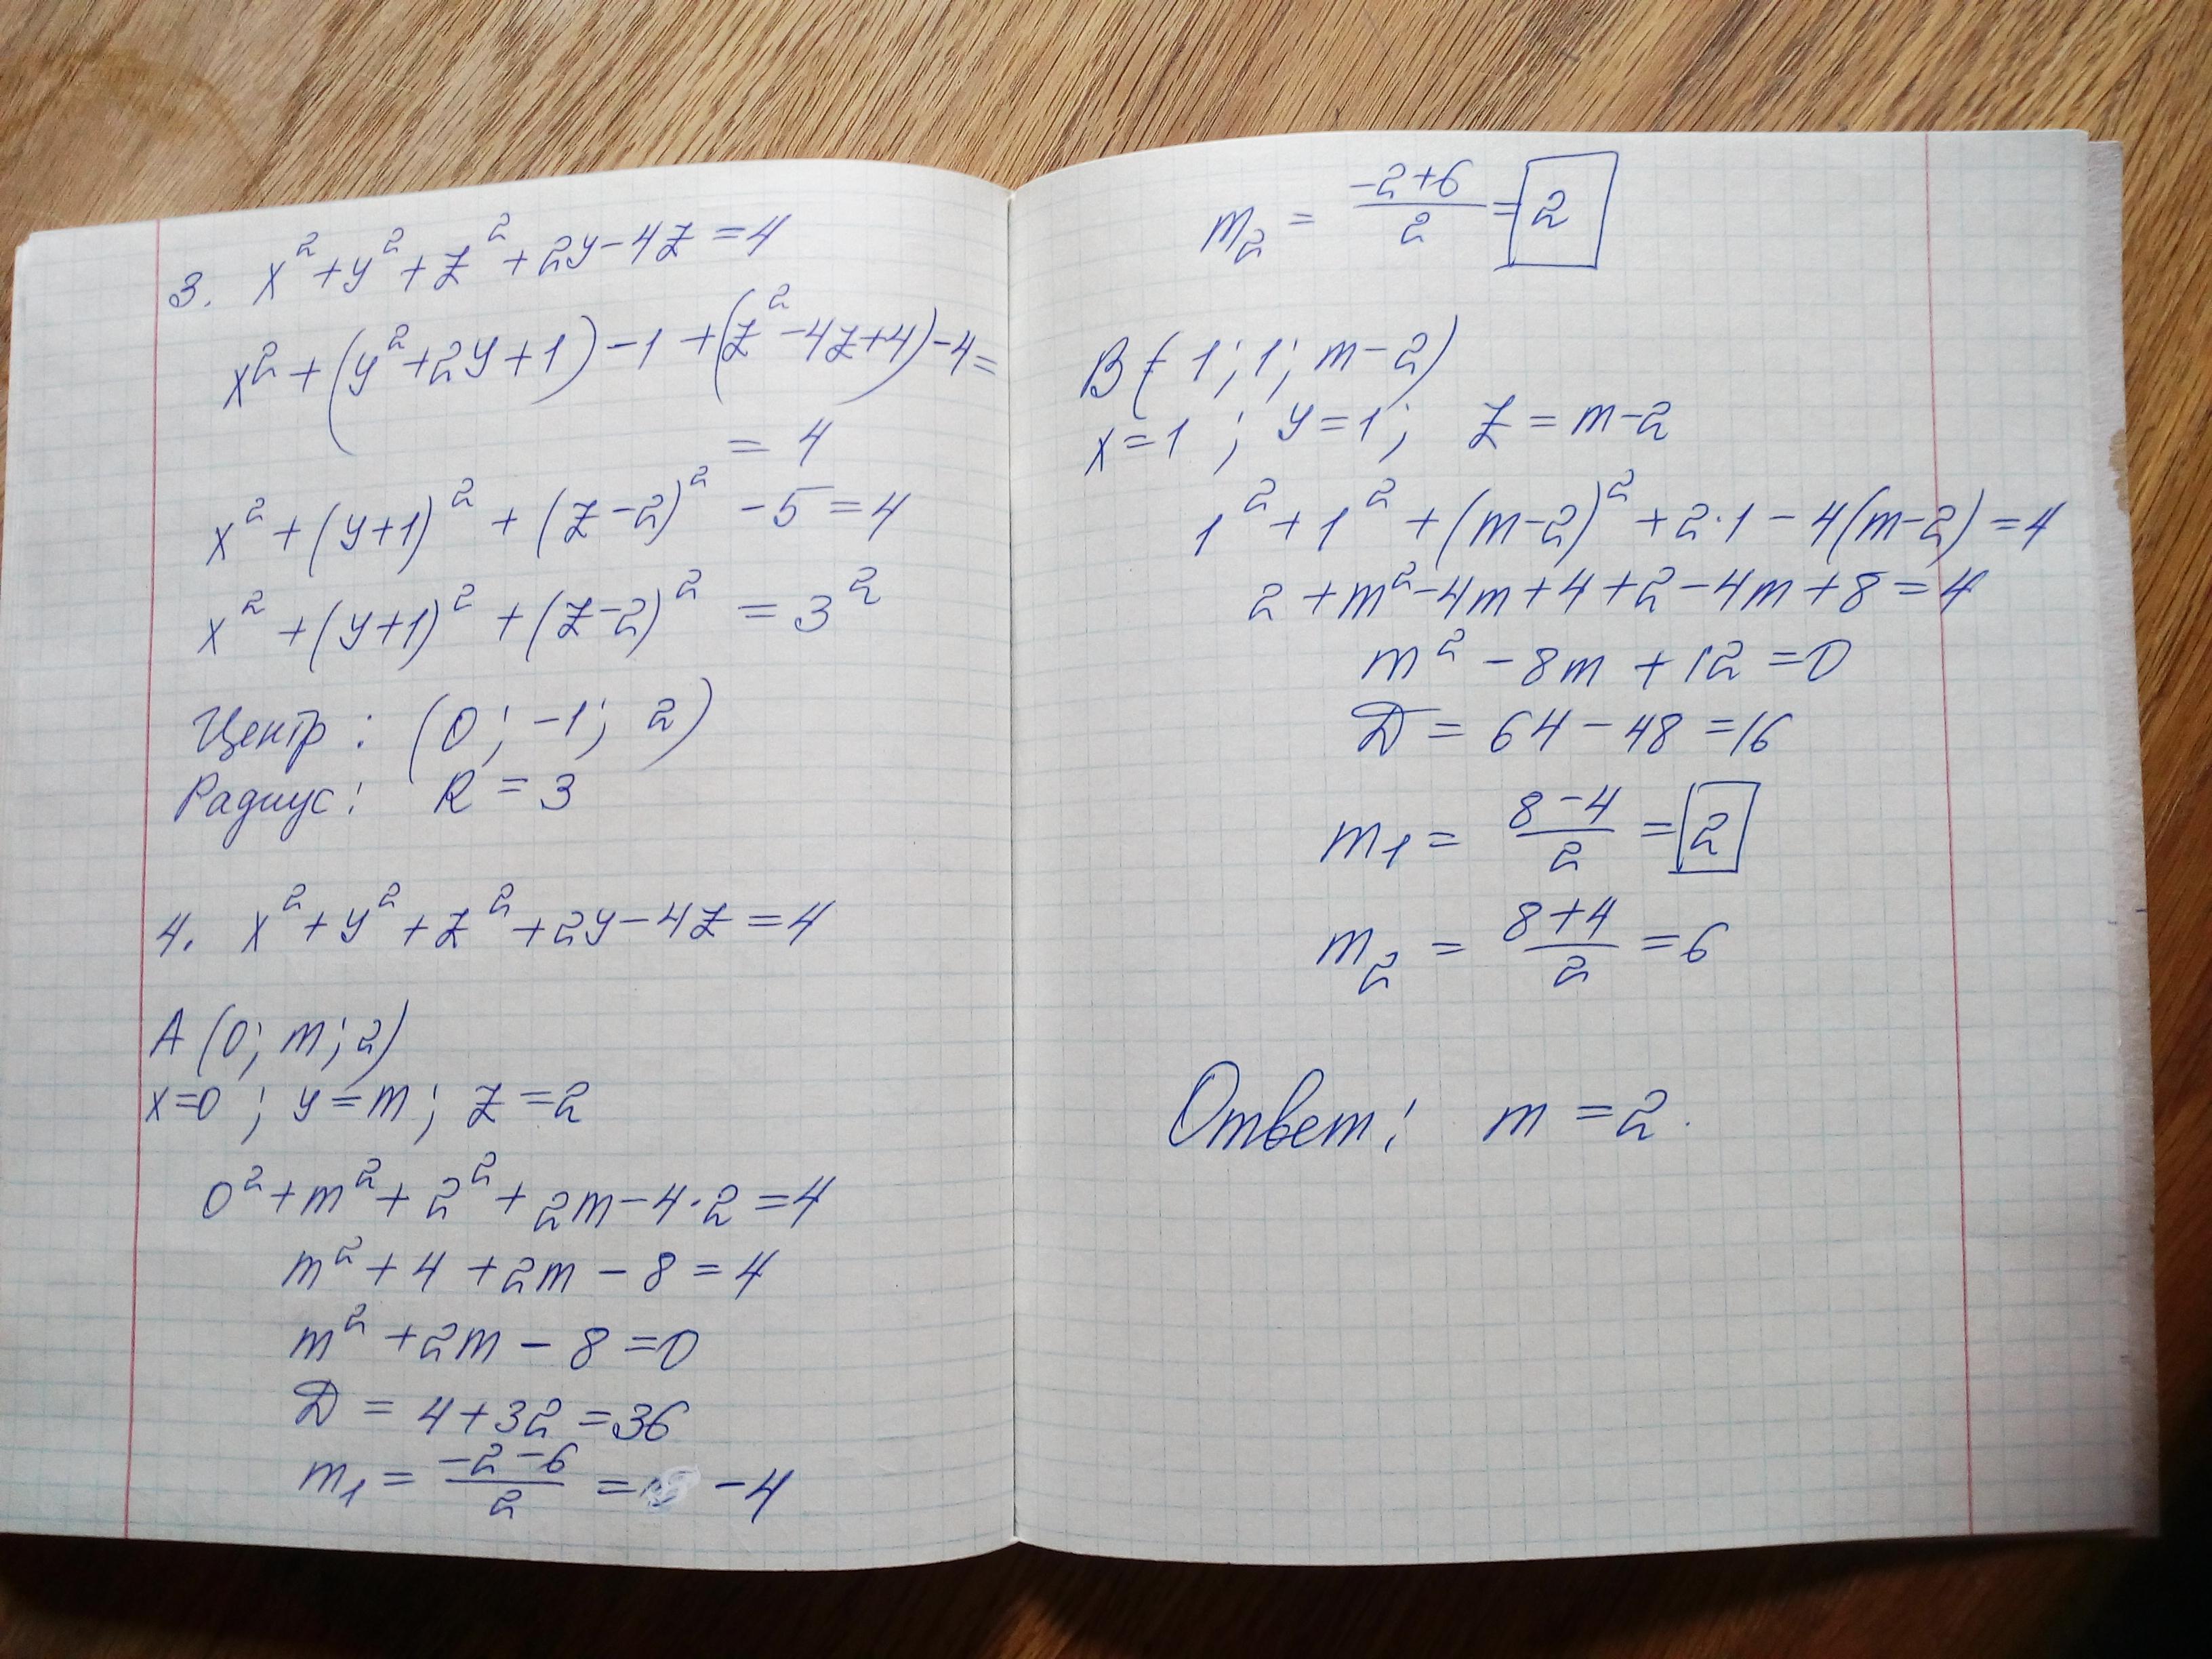 3. x² + y² + z² + 2y - 4z = 4
x² + (y² + 2y + 1) - 1 + (z² - 4z + 4) - 4 =
= 4
x² + (y+1)² + (z-2)² - 5 = 4
x² + (y+1)² + (z-2)² = 3²
Центр: (0; -1; 2)
Радиус: R = 3
4. x² + y² + z² + 2y - 4z = 4
A (0; m; 2)
x=0; y=m; z=2
0² + m² + 2² + 2m - 4·2 = 4
m² + 4 + 2m - 8 = 4
m² + 2m - 8 = 0
D = 4 + 32 = 36
m₁ = (-2-6)/2 = -4
m₂ = (-2+6)/2 = 2
B (1; 1; m-2)
x=1; y=1; z=m-2
1² + 1² + (m-2)² + 2·1 - 4(m-2) = 4
2 + m² - 4m + 4 + 2 - 4m + 8 = 4
m² - 8m + 12 = 0
D = 64 - 48 = 16
m₁ = (8-4)/2 = 2
m₂ = (8+4)/2 = 6
Ответ: m = 2.